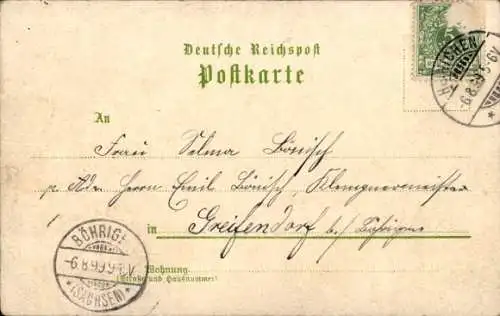 Deutsche Reichspost
Postkarte
An
Frau Selma Bönisch
p. Adr. Herrn Emil Bönisch, Klempnermeister
in Greifendorf b/
Wohnung
(Straße und Hausnummer)
HAINICHEN
6.8.99.5-6V
BÖHRIGEN
-6.8.99.9-
*(SACHSEN)*